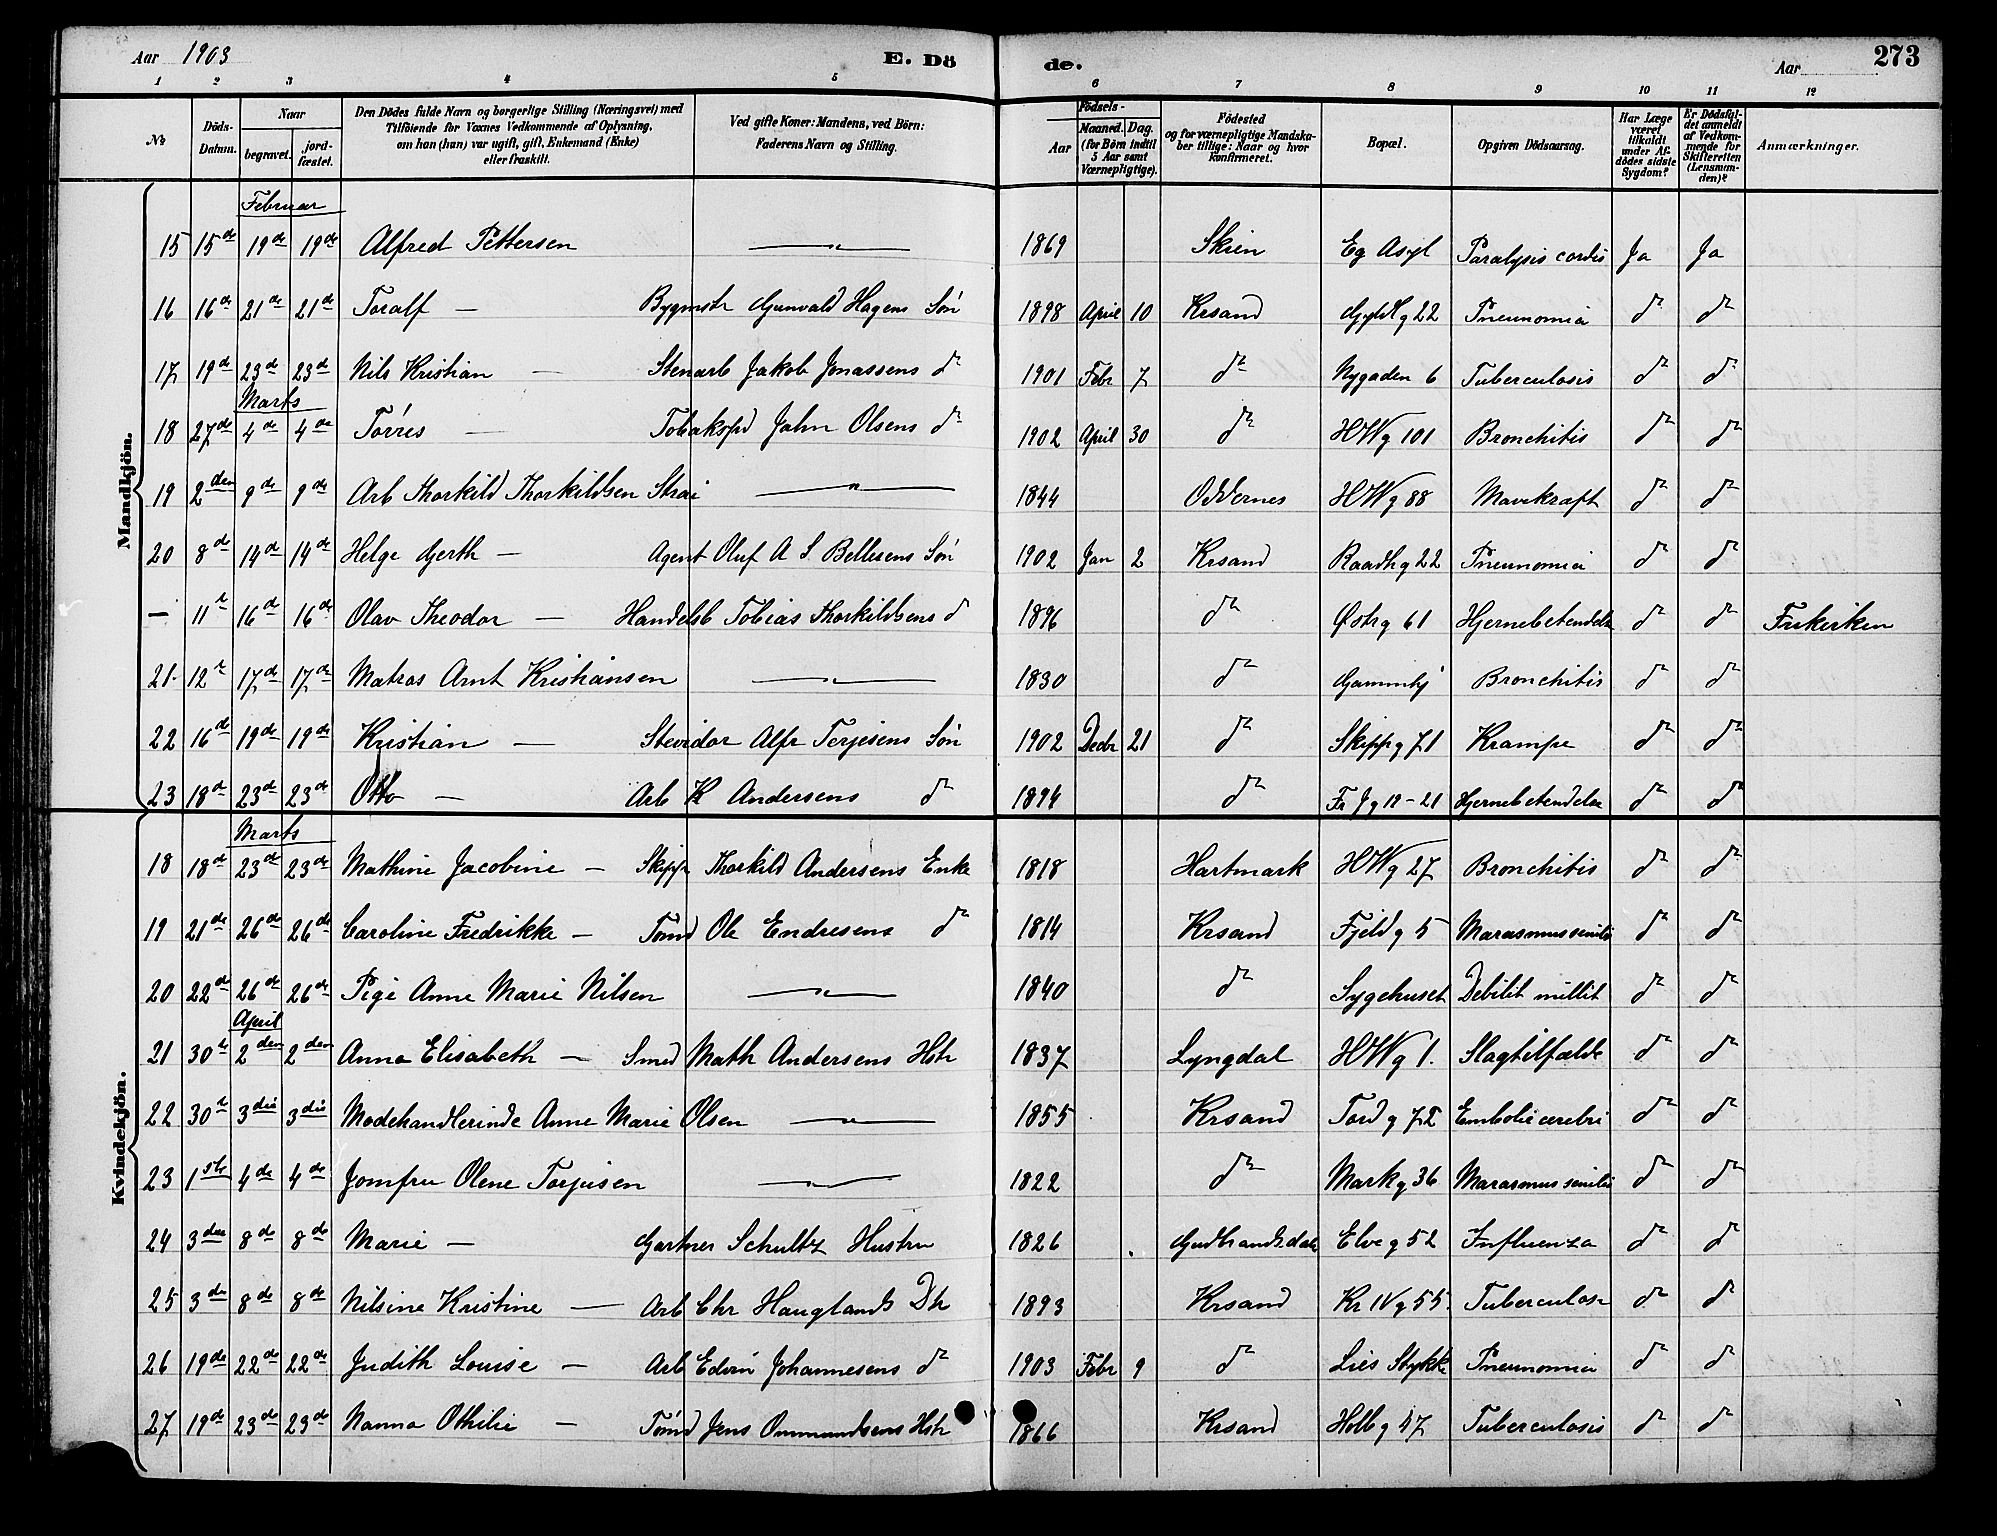 Aar 1903 E. Dö de. Aar 273
1 2 3 4 5 6 7 8 9 10 11 12
№ Döds-Datum. Naar begravet. jord-fæstet. Den Dödes fulde Navn og borgerlige Stilling (Næringsvei) med Tilföiende for Voxnes Vedkommende af Oplysning, om han (hun) var ugift, gift, Enkemand (Enke) eller fraskilt. Ved gifte Koner: Mandens, ved Börn: Faderens Navn og Stilling. Födsels- Aar Maaned. Dag. (for Börn indtil 5 Aar samt Værnepligtige). Födested og for værnepligtige Mandskaber tillige: Naar og hvor konfirmeret. Bopæl. Opgiven Dödsaarsag. Har Læge været tilkaldt under Afdödes sidste Sygdom? Er Dödsfaldet anmeldt af Vedkommende for Skifteretten (Lensmanden)? Anmærkninger.
Mandkjön.
Februar
15 15de 19de 19de Alfred Pettersen — " — 1869 Skien Eg Asyl Paralysis cordis Ja Ja
16 16de 21de 21de Toralf — Bygmstr Gunvald Hagens Sön 1898 April 10 Krsand Gyldg 22 Pneumonia do do
17 19de 23de 23de Nils Kristian — Stenarb Jakob Jonassens do 1901 Febr 7 do Nygaden 6 Tuberculosis do do
Marts
18 27de 4de 4de Törres — Tobaksspd John Olsens do 1902 April 30 do HWg 101 Bronchitis do do
19 2den 9de 9de Arb Thorkild Thorkildsen Strai — " — 1844 Oddernes HWg 88 Mavekræft do do
20 8de 14de 14de Helge Gerth — Agent Oluf A S Bellesens Sön 1902 Jan 2 Krsand Raadhg 22 Pneumonia do do
— 11te 16de 16de Olav Theodor — Handelsb Tobias Thorkildsens do 1896 do Østrg 61 Hjernebetændelse do do Frikirken
21 12te 17de 17de Matros Arnt Kristiansen — " — 1830 do Gammlhj Bronchitis do do
22 16de 19de 19de Kristian — Stevidor Alfr Terjesens Sön 1902 Decbr 21 do Skippg 71 Krampe do do
23 18de 23de 23de Otto — Arb K Andersens do 1894 do Fr J g 19-21 Hjernebetændelse do do
Kvindekjön.
Marts
18 18de 23de 23de Mathine Jacobine — Skippr Thorkild Andersens Enke 1818 Hartmark HWg 27 Bronchitis do do
19 21de 26de 26de Caroline Fredrikke — Tömd Ole Endresens do 1814 Krsand Fjeldg 5 Marasmus senilis do do
20 22de 26de 26de Pige Anne Marie Nilsen — " — 1840 do Sygehuset Debilit millit do do
April
21 30te 2den 2den Anna Elisabeth — Smed Math Andersens Hstr 1837 Lyngdal HWg 1. Slagtilfælde do do
22 30te 3die 3die Modehandlerinde Anne Marie Olsen — " — 1855 Krsand Tordg 72 Emboli cerebri do do
23 1ste 4de 4de Jomfru Olene Torjusen — " — 1822 do Markg 36 Marasmus senilis do do
24 3die 8de 8de Marie — Gartner Schultz Hustru 1826 Gudbrandsdalen Elveg 52 Influenza do do
25 3die 8de 8de Nilsine Kristine — Arb Chr Hauglands Dtr 1893 Krsand Kr IVg 55. Tuberculose do do
26 19de 22de 22de Judith Louise — Arb Edvin Johannesens do 1903 Febr 9 do Lies Stykke Pneumonia do do
27 19de 23de 23de Nanna Othilie — Tömd Jens Ommundsens Hstr 1866 Krsand Holbg 47 Tuberculosis do do